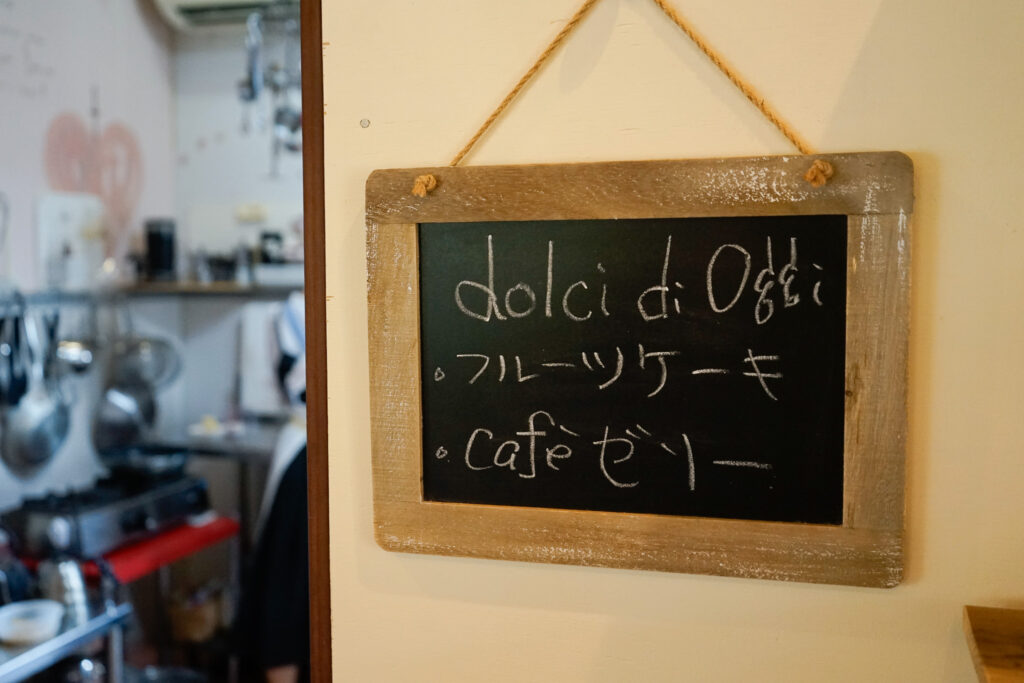 dolci di Oggi
・フルーツケーキ
・cafè ゼリー